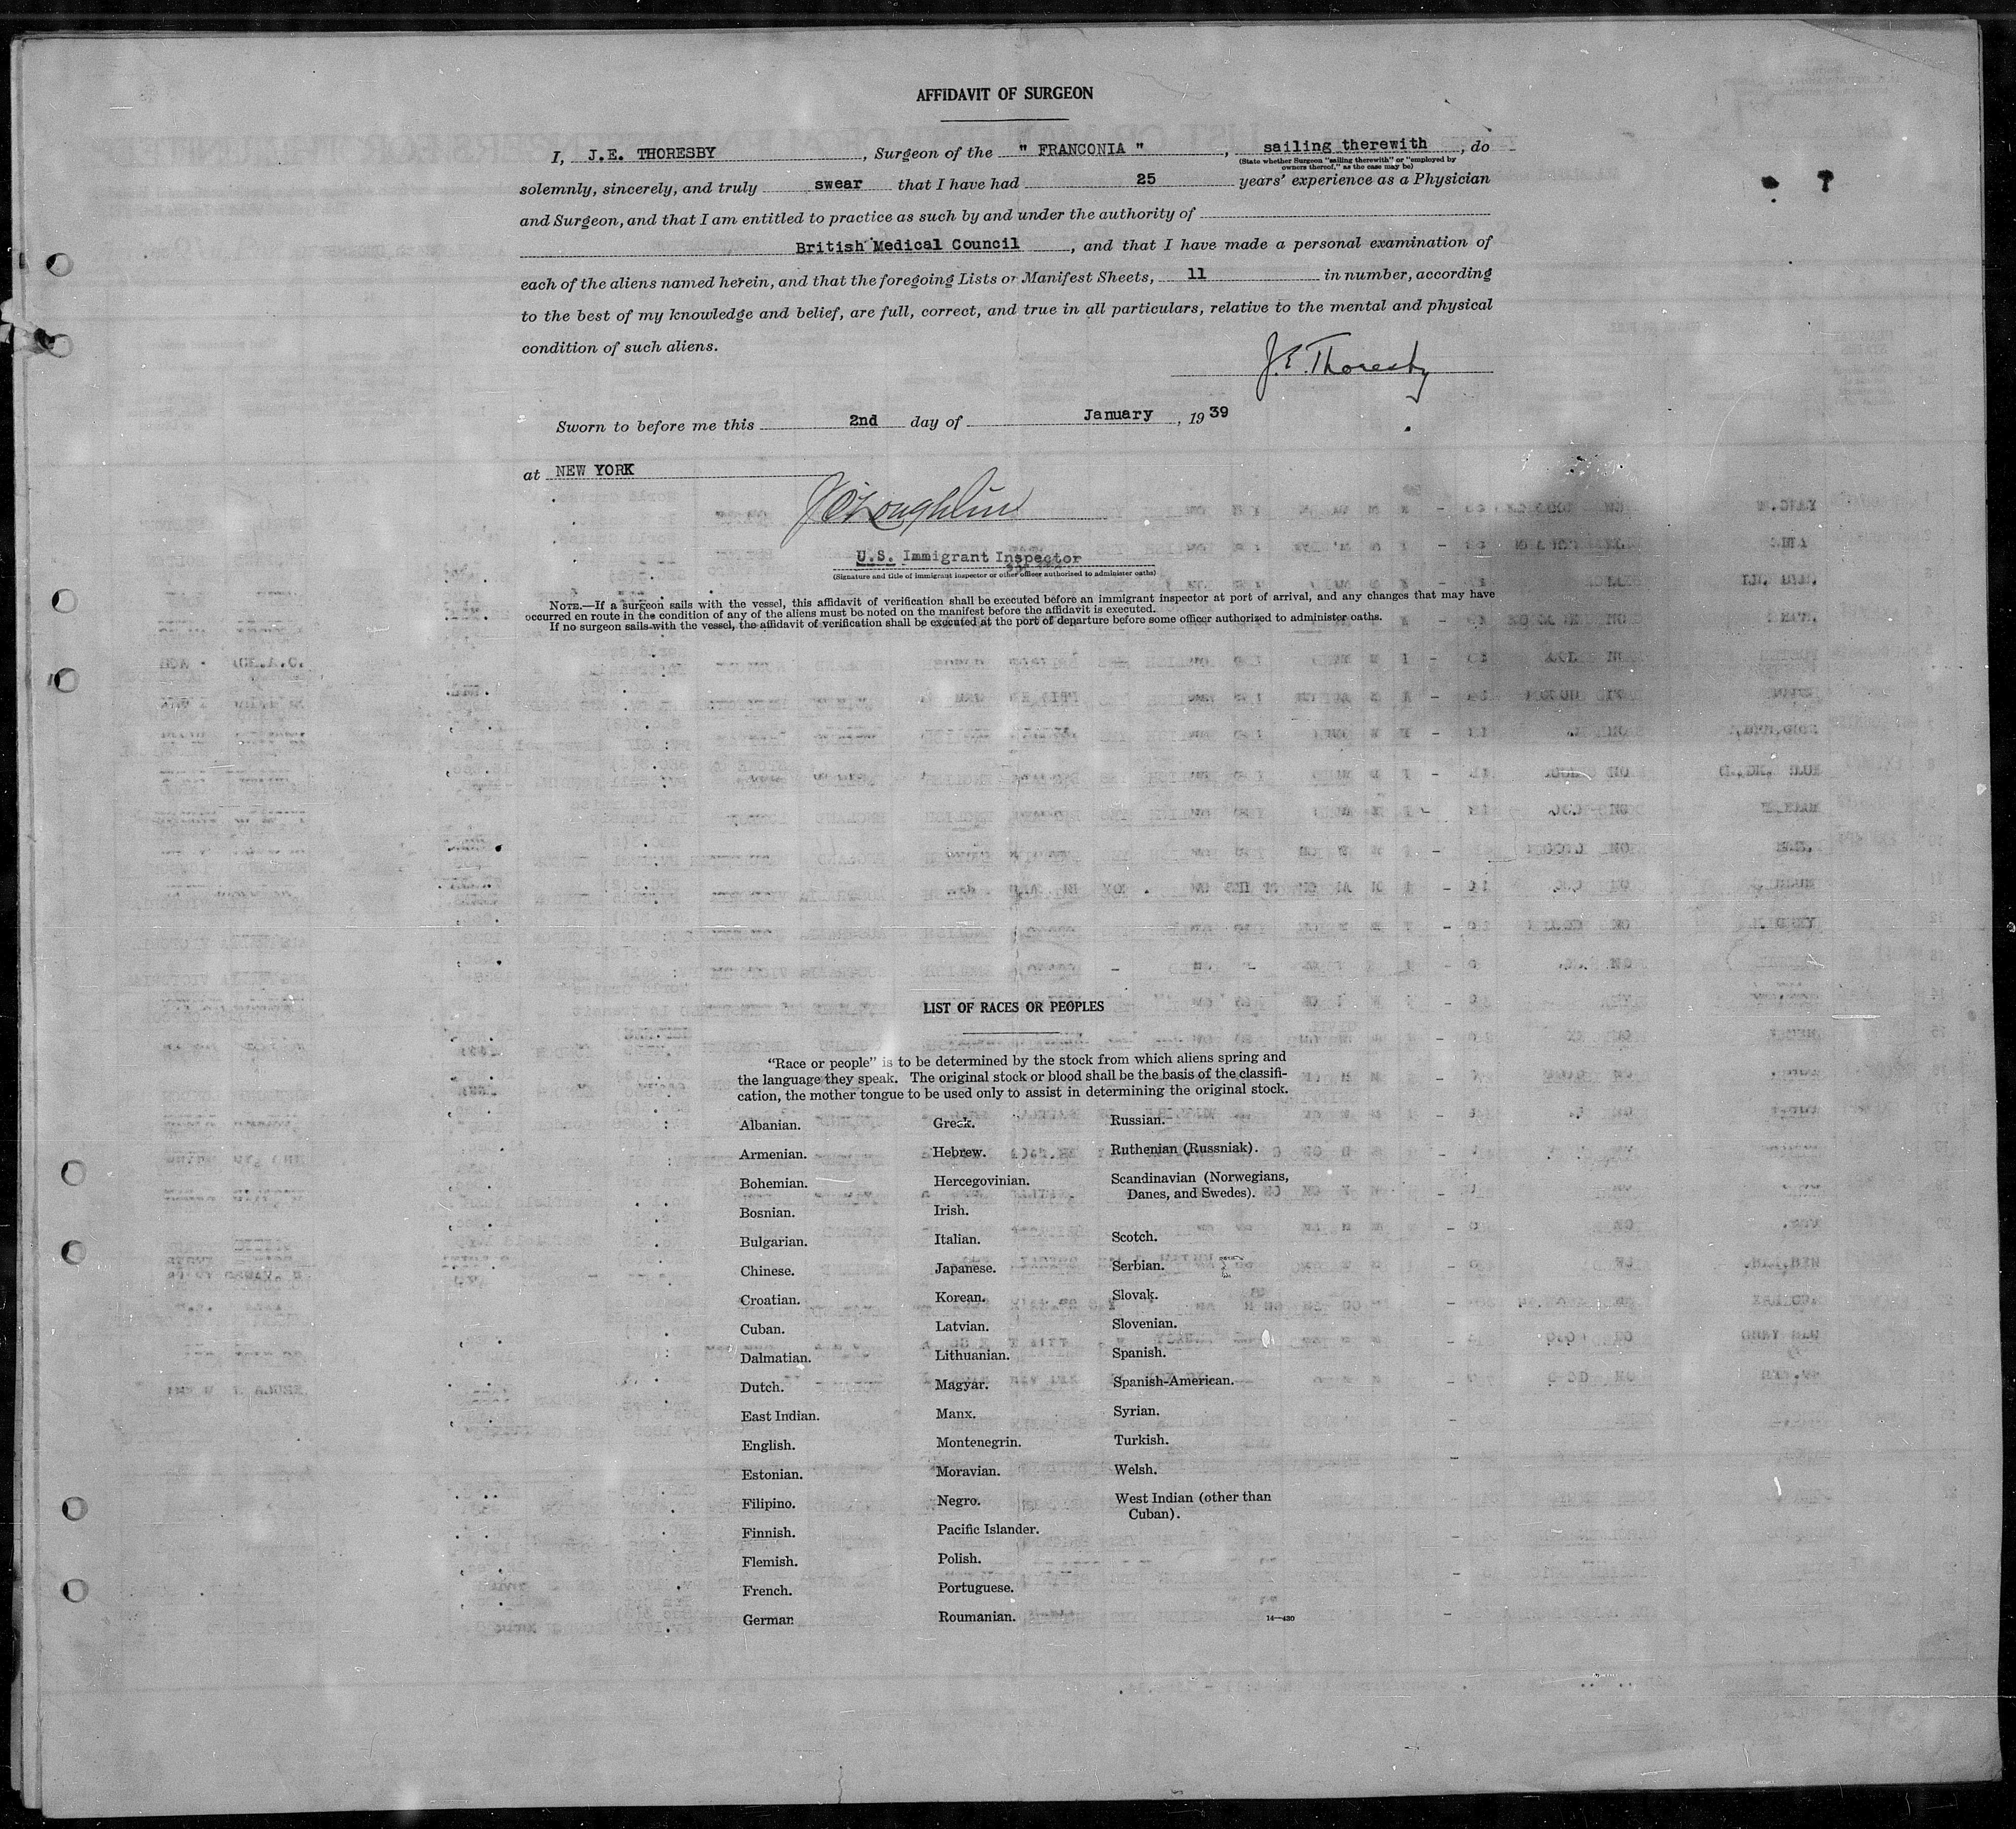 AFFIDAVIT OF SURGEON
I, J.E. THORESBY, Surgeon of the " FRANCONIA ", sailing therewith, do
(State whether Surgeon "sailing therewith" or "employed by
owners thereof," as the case may be)
solemnly, sincerely, and truly swear that I have had 25 years' experience as a Physician
and Surgeon, and that I am entitled to practice as such by and under the authority of
British Medical Council, and that I have made a personal examination of
each of the aliens named herein, and that the foregoing Lists or Manifest Sheets, 11 in number, according
to the best of my knowledge and belief, are full, correct, and true in all particulars, relative to the mental and physical
condition of such aliens.
J.E. Thoresby
Sworn to before me this 2nd day of January, 1939
at NEW YORK
J O'Loughlin
U.S. Immigrant Inspector
(Signature and title of immigrant inspector or other officer authorized to administer oaths)
NOTE.—If a surgeon sails with the vessel, this affidavit of verification shall be executed before an immigrant inspector at port of arrival, and any changes that may have
occurred en route in the condition of any of the aliens must be noted on the manifest before the affidavit is executed.
If no surgeon sails with the vessel, the affidavit of verification shall be executed at the port of departure before some officer authorized to administer oaths.
LIST OF RACES OR PEOPLES
"Race or people" is to be determined by the stock from which aliens spring and
the language they speak. The original stock or blood shall be the basis of the classifi-
cation, the mother tongue to be used only to assist in determining the original stock.
Albanian.
Armenian.
Bohemian.
Bosnian.
Bulgarian.
Chinese.
Croatian.
Cuban.
Dalmatian.
Dutch.
East Indian.
English.
Estonian.
Filipino.
Finnish.
Flemish.
French.
German
Greek.
Hebrew.
Hercegovinian.
Irish.
Italian.
Japanese.
Korean.
Latvian.
Lithuanian.
Magyar.
Manx.
Montenegrin.
Moravian.
Negro.
Pacific Islander.
Polish.
Portuguese.
Roumanian.
Russian.
Ruthenian (Russniak).
Scandinavian (Norwegians,
Danes, and Swedes).
Scotch.
Serbian.
Slovak.
Slovenian.
Spanish.
Spanish-American.
Syrian.
Turkish.
Welsh.
West Indian (other than
Cuban).
14—430